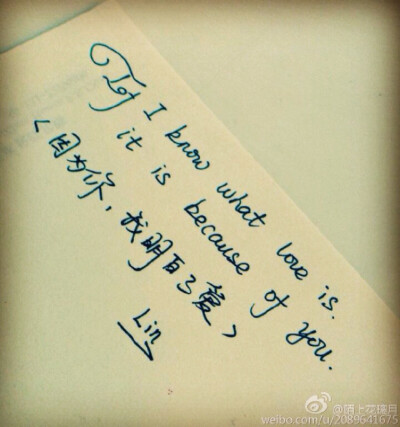 If I know what love is.
it is because of you.
<因为你，我明白了爱>
Lin
@陌上花琦月
weibo.com/u/2089641675